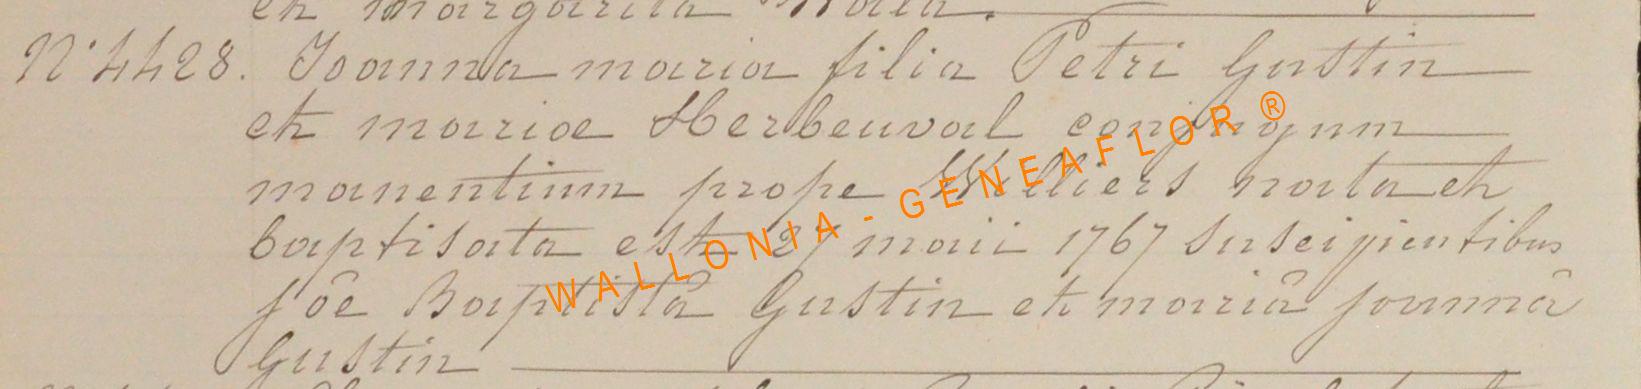 et margarita
N° 4428. Joanna maria filia Petri Gustin
et mariæ Herbeuval conjugum
manentium prope Williers nata et
baptisata est 27 maii 1767 suscipientibus
jôe Baptistâ Gustin et mariâ joannâ
Gustin
WALLONIA - GENEAFLOR ®